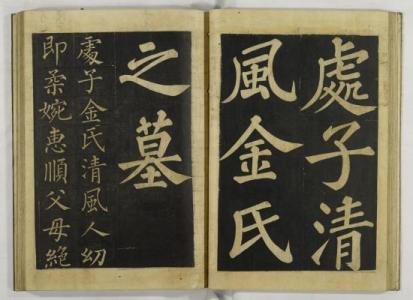 處子清
風金氏
之墓
處子金氏清風人幼
即柔婉惠順父母絶